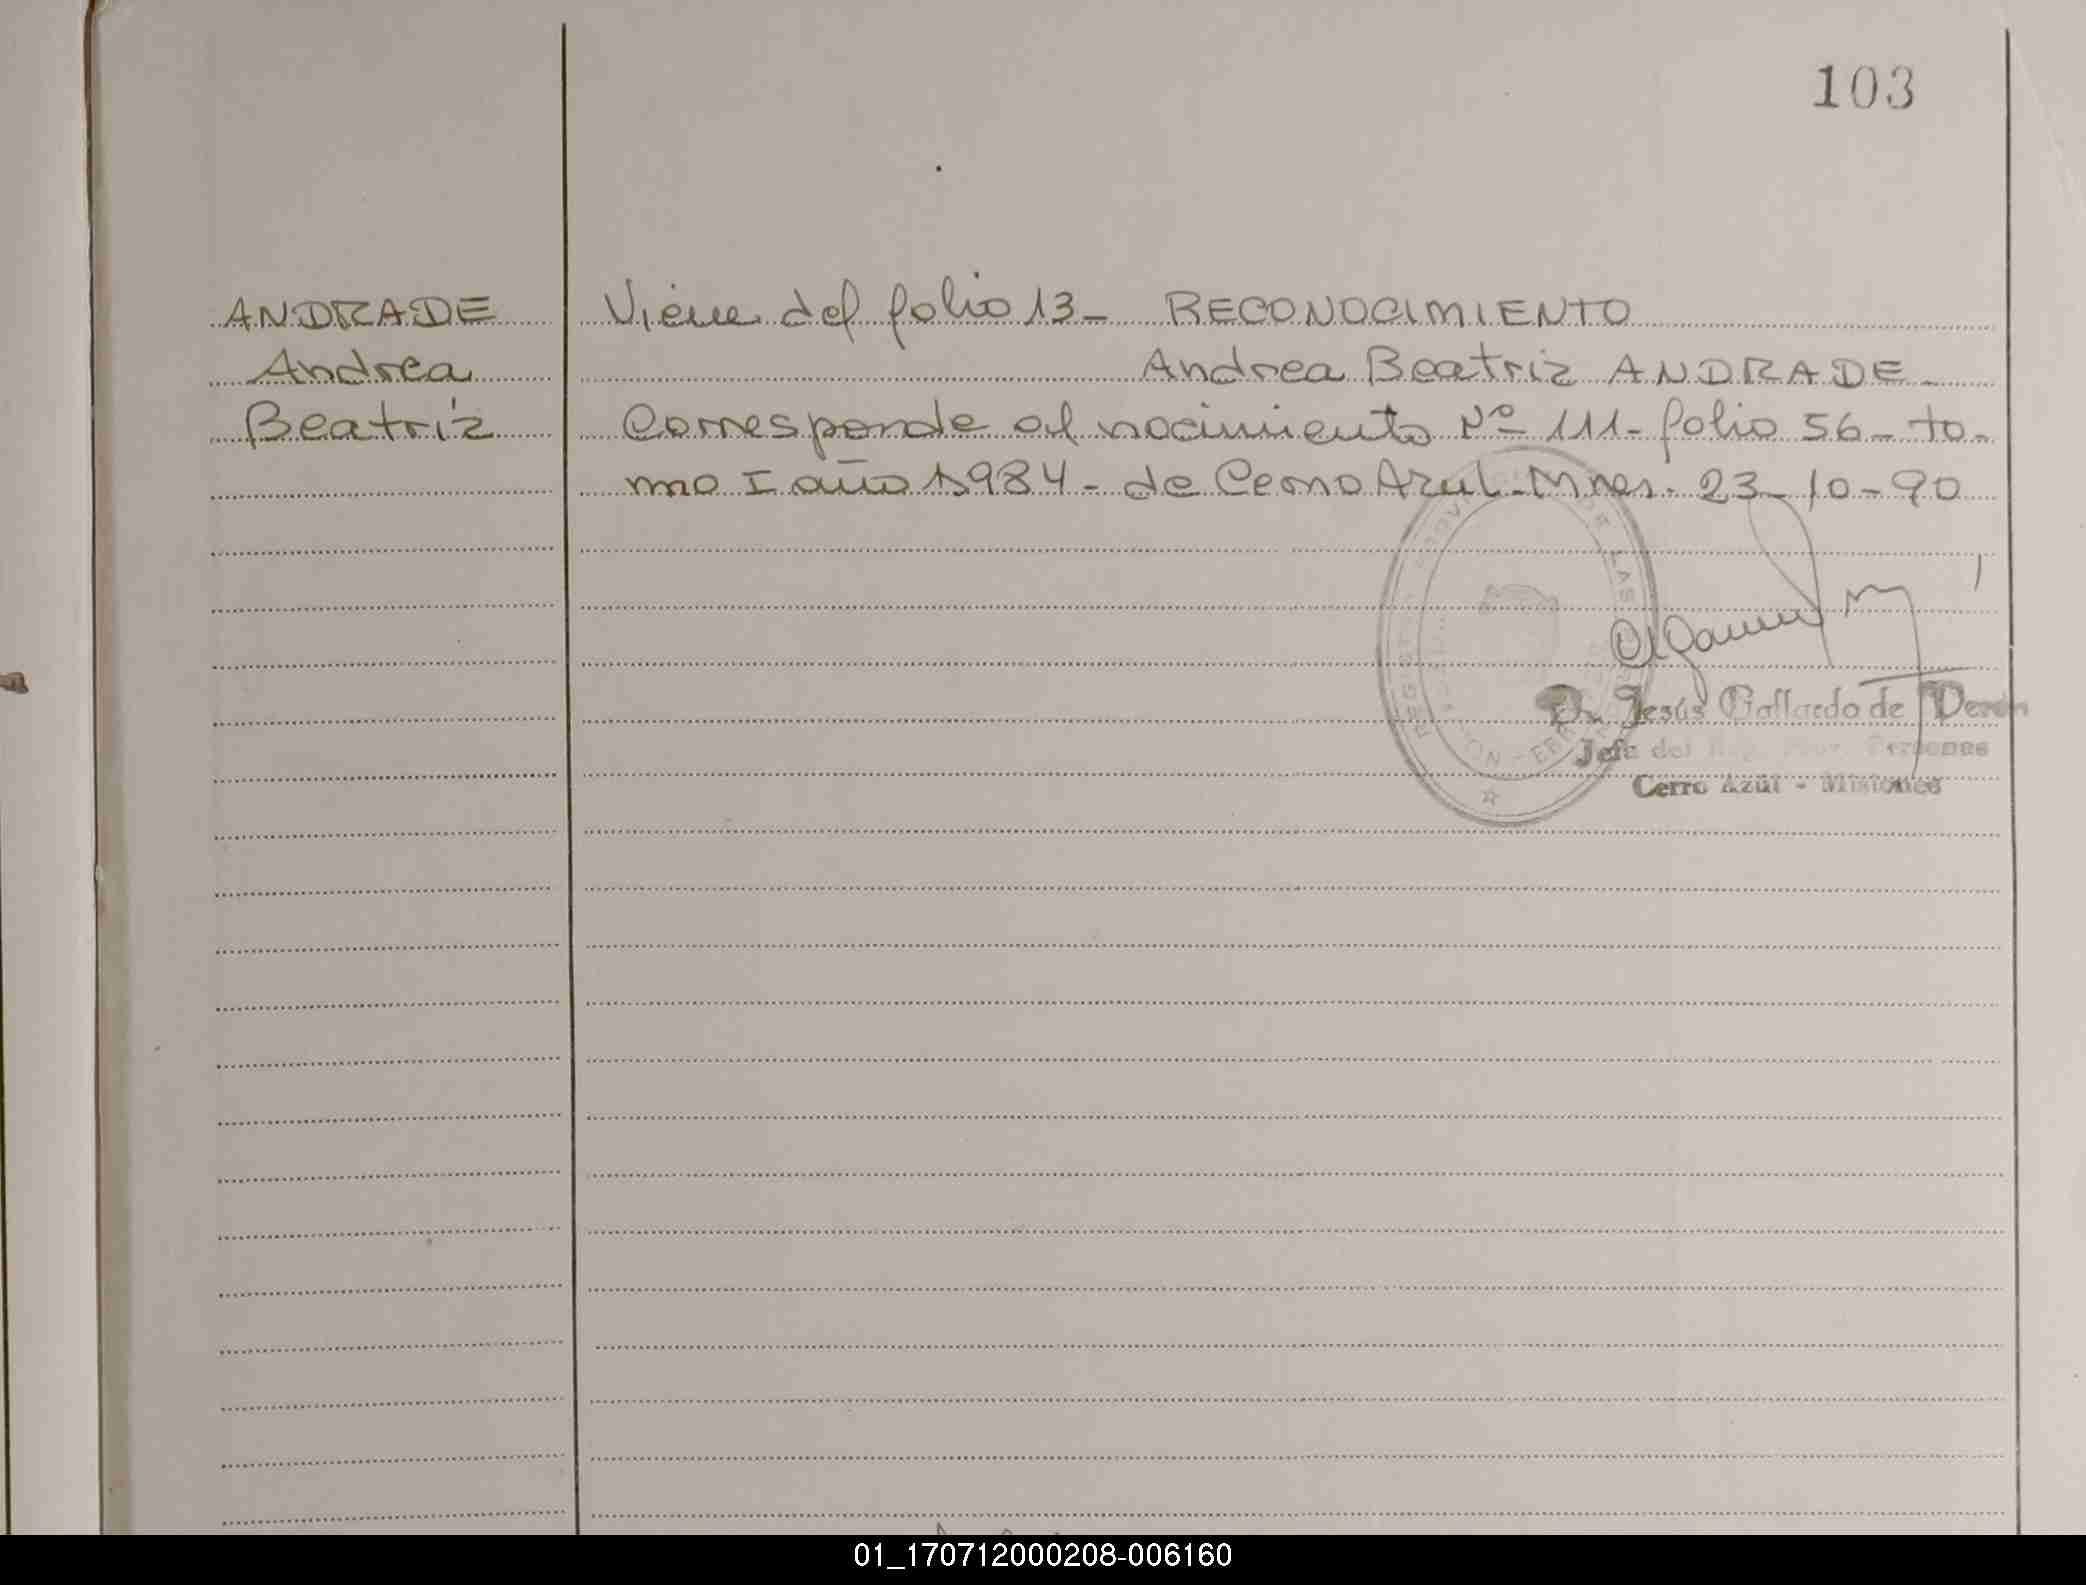 103
ANDRADE Viene del folio 13- RECONOCIMIENTO
Andrea Andrea Beatriz ANDRADE-
Beatriz Corresponde al nacimiento Nº 111- folio 56- to-
mo I año 1984- de Cerro Azul- Mnes. 23-10-90
Jesús Gallardo de
Jefe del Personas
Cerro Azul - Misiones
01_170712000208-006160